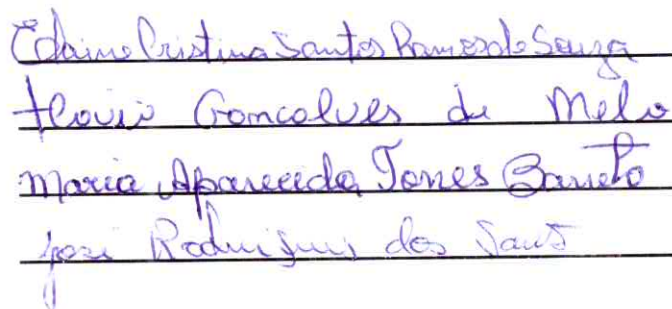 Edaine Cristina Santos Ramos de Souza
Flavio Goncalves de Melo
Maria Aparecida Torres Barreto
José Rodrigues dos Sant